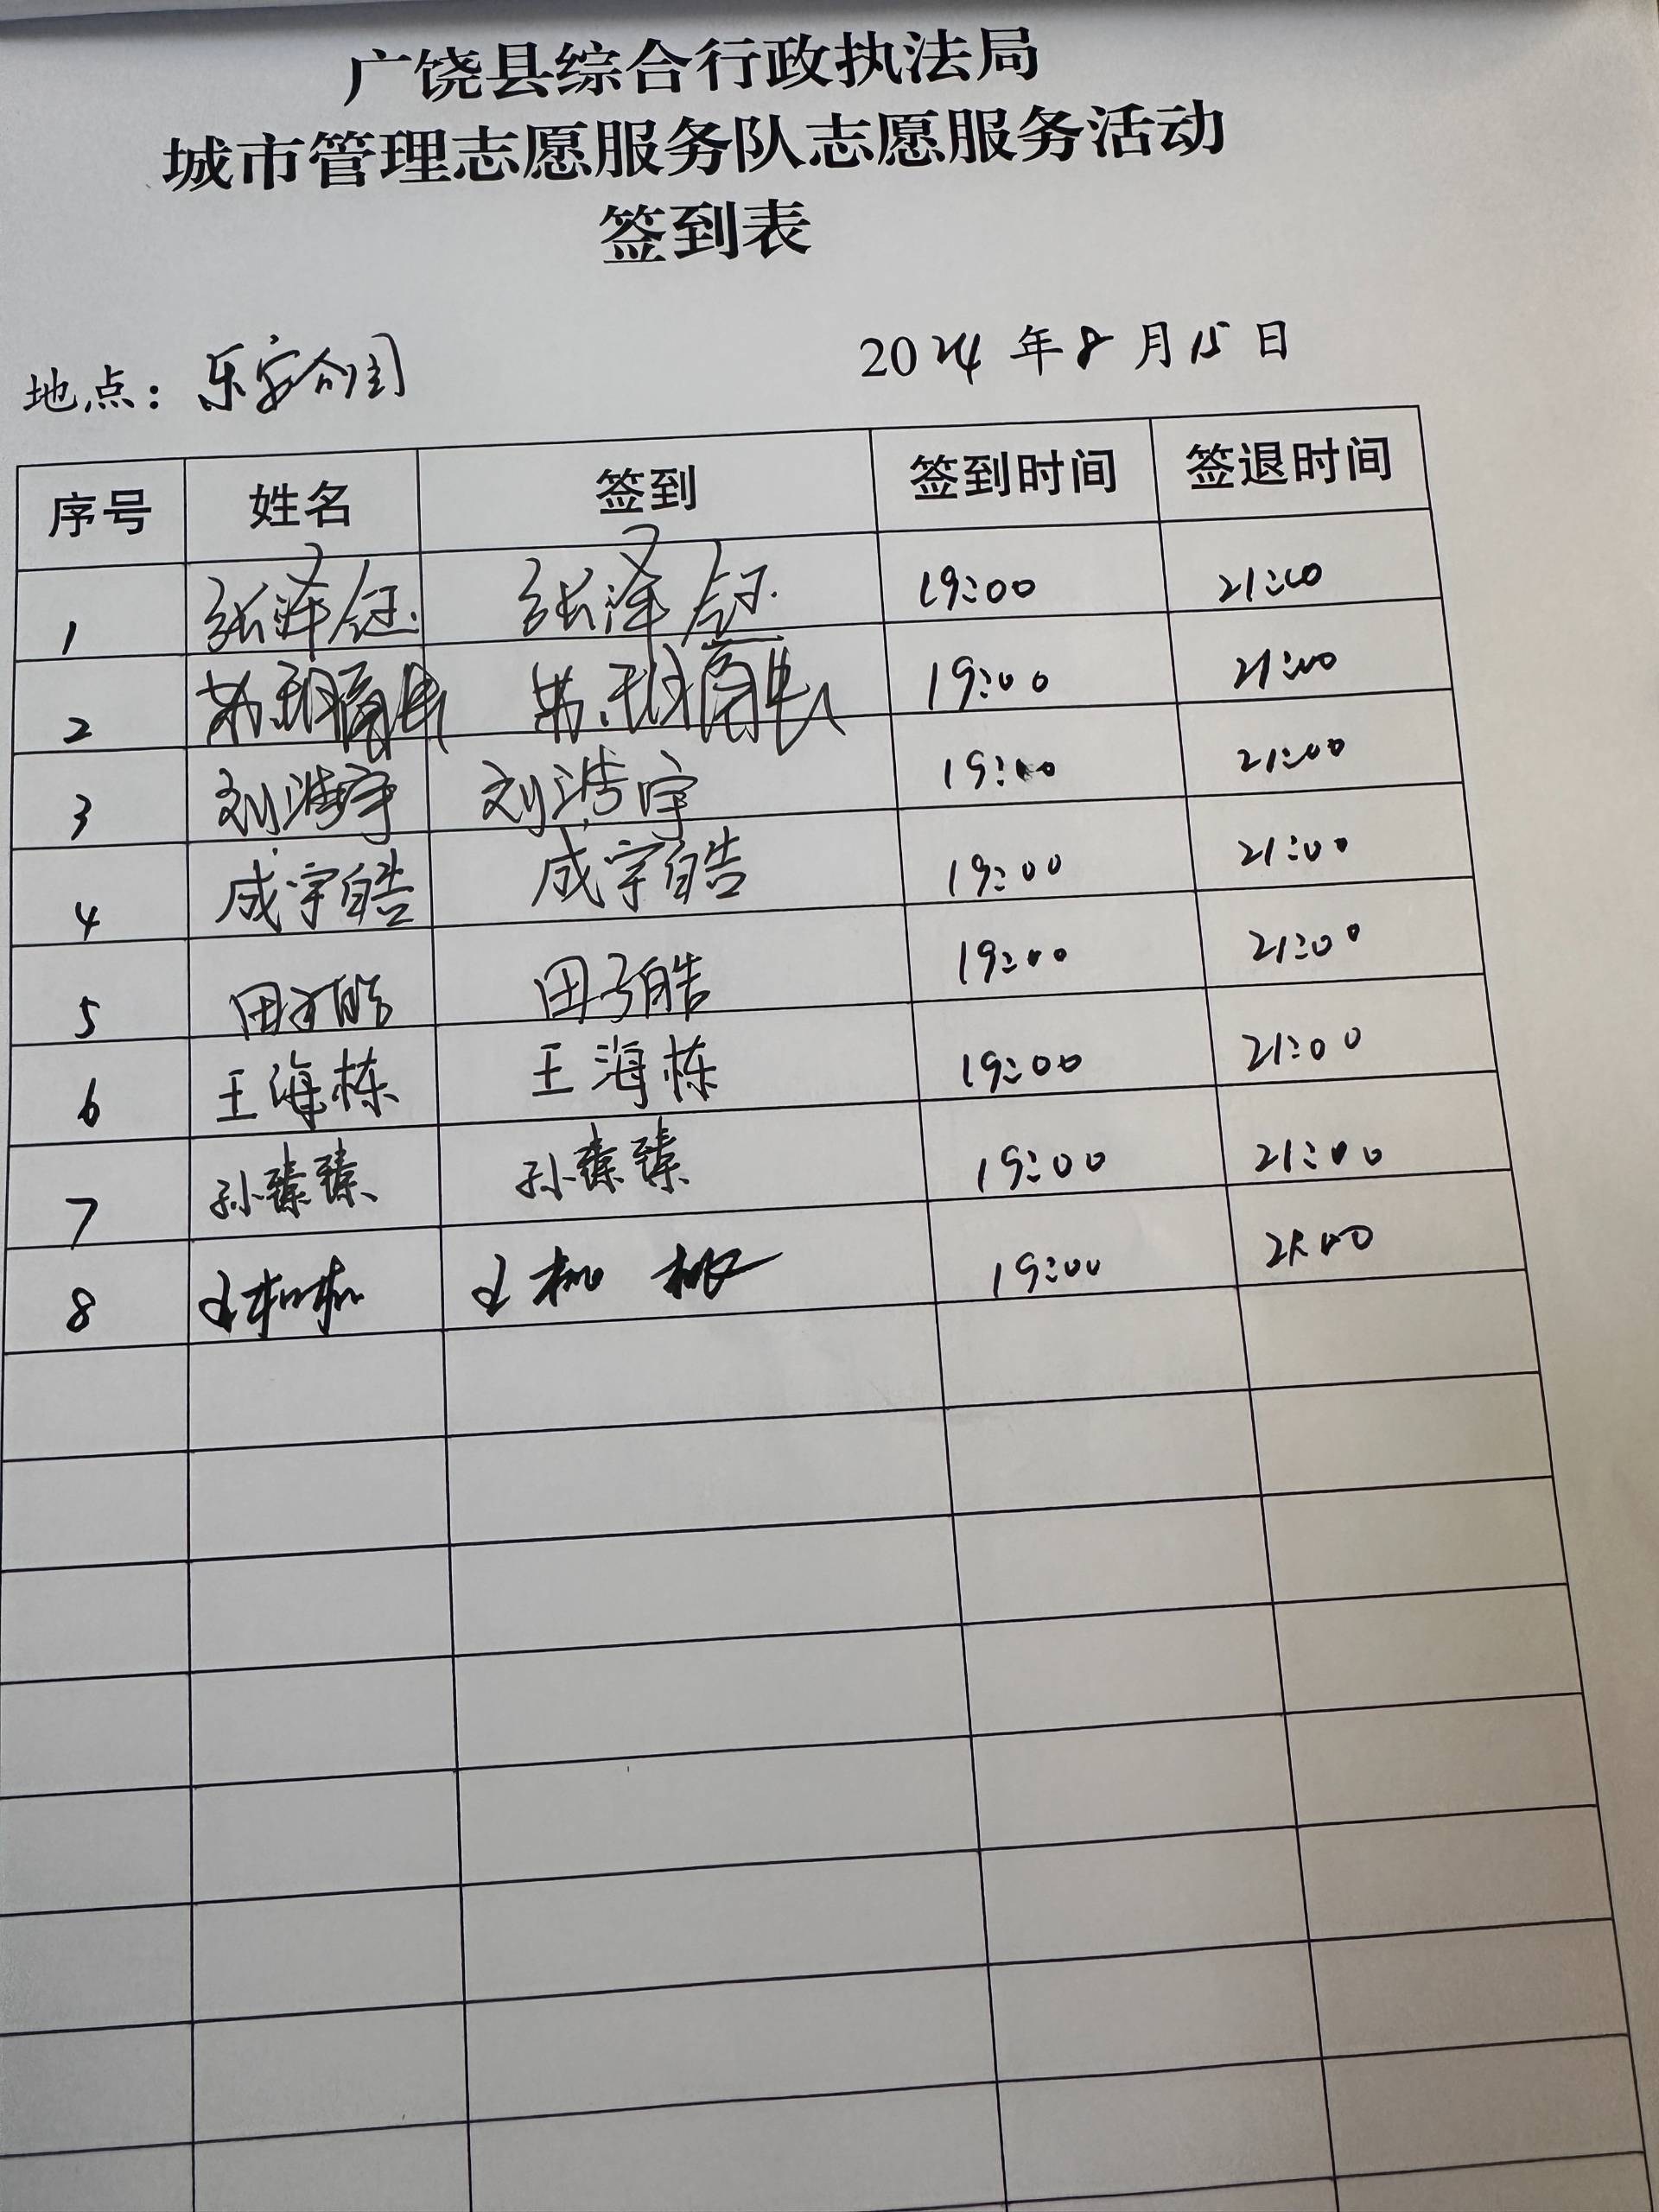 广饶县综合行政执法局
城市管理志愿服务队志愿服务活动
签到表
地点：乐安公园 2024年8月15日
序号 姓名 签到 签到时间 签退时间
1 张泽钰 张泽钰 19:00 21:00
2 19:00 21:00
3 刘浩宇 刘浩宇 19:00 21:00
4 成宇皓 成宇皓 19:00 21:00
5 田子皓 田子皓 19:00 21:00
6 王海栋 王海栋 19:00 21:00
7 孙臻臻 孙臻臻 19:00 21:00
8 19:00 21:00